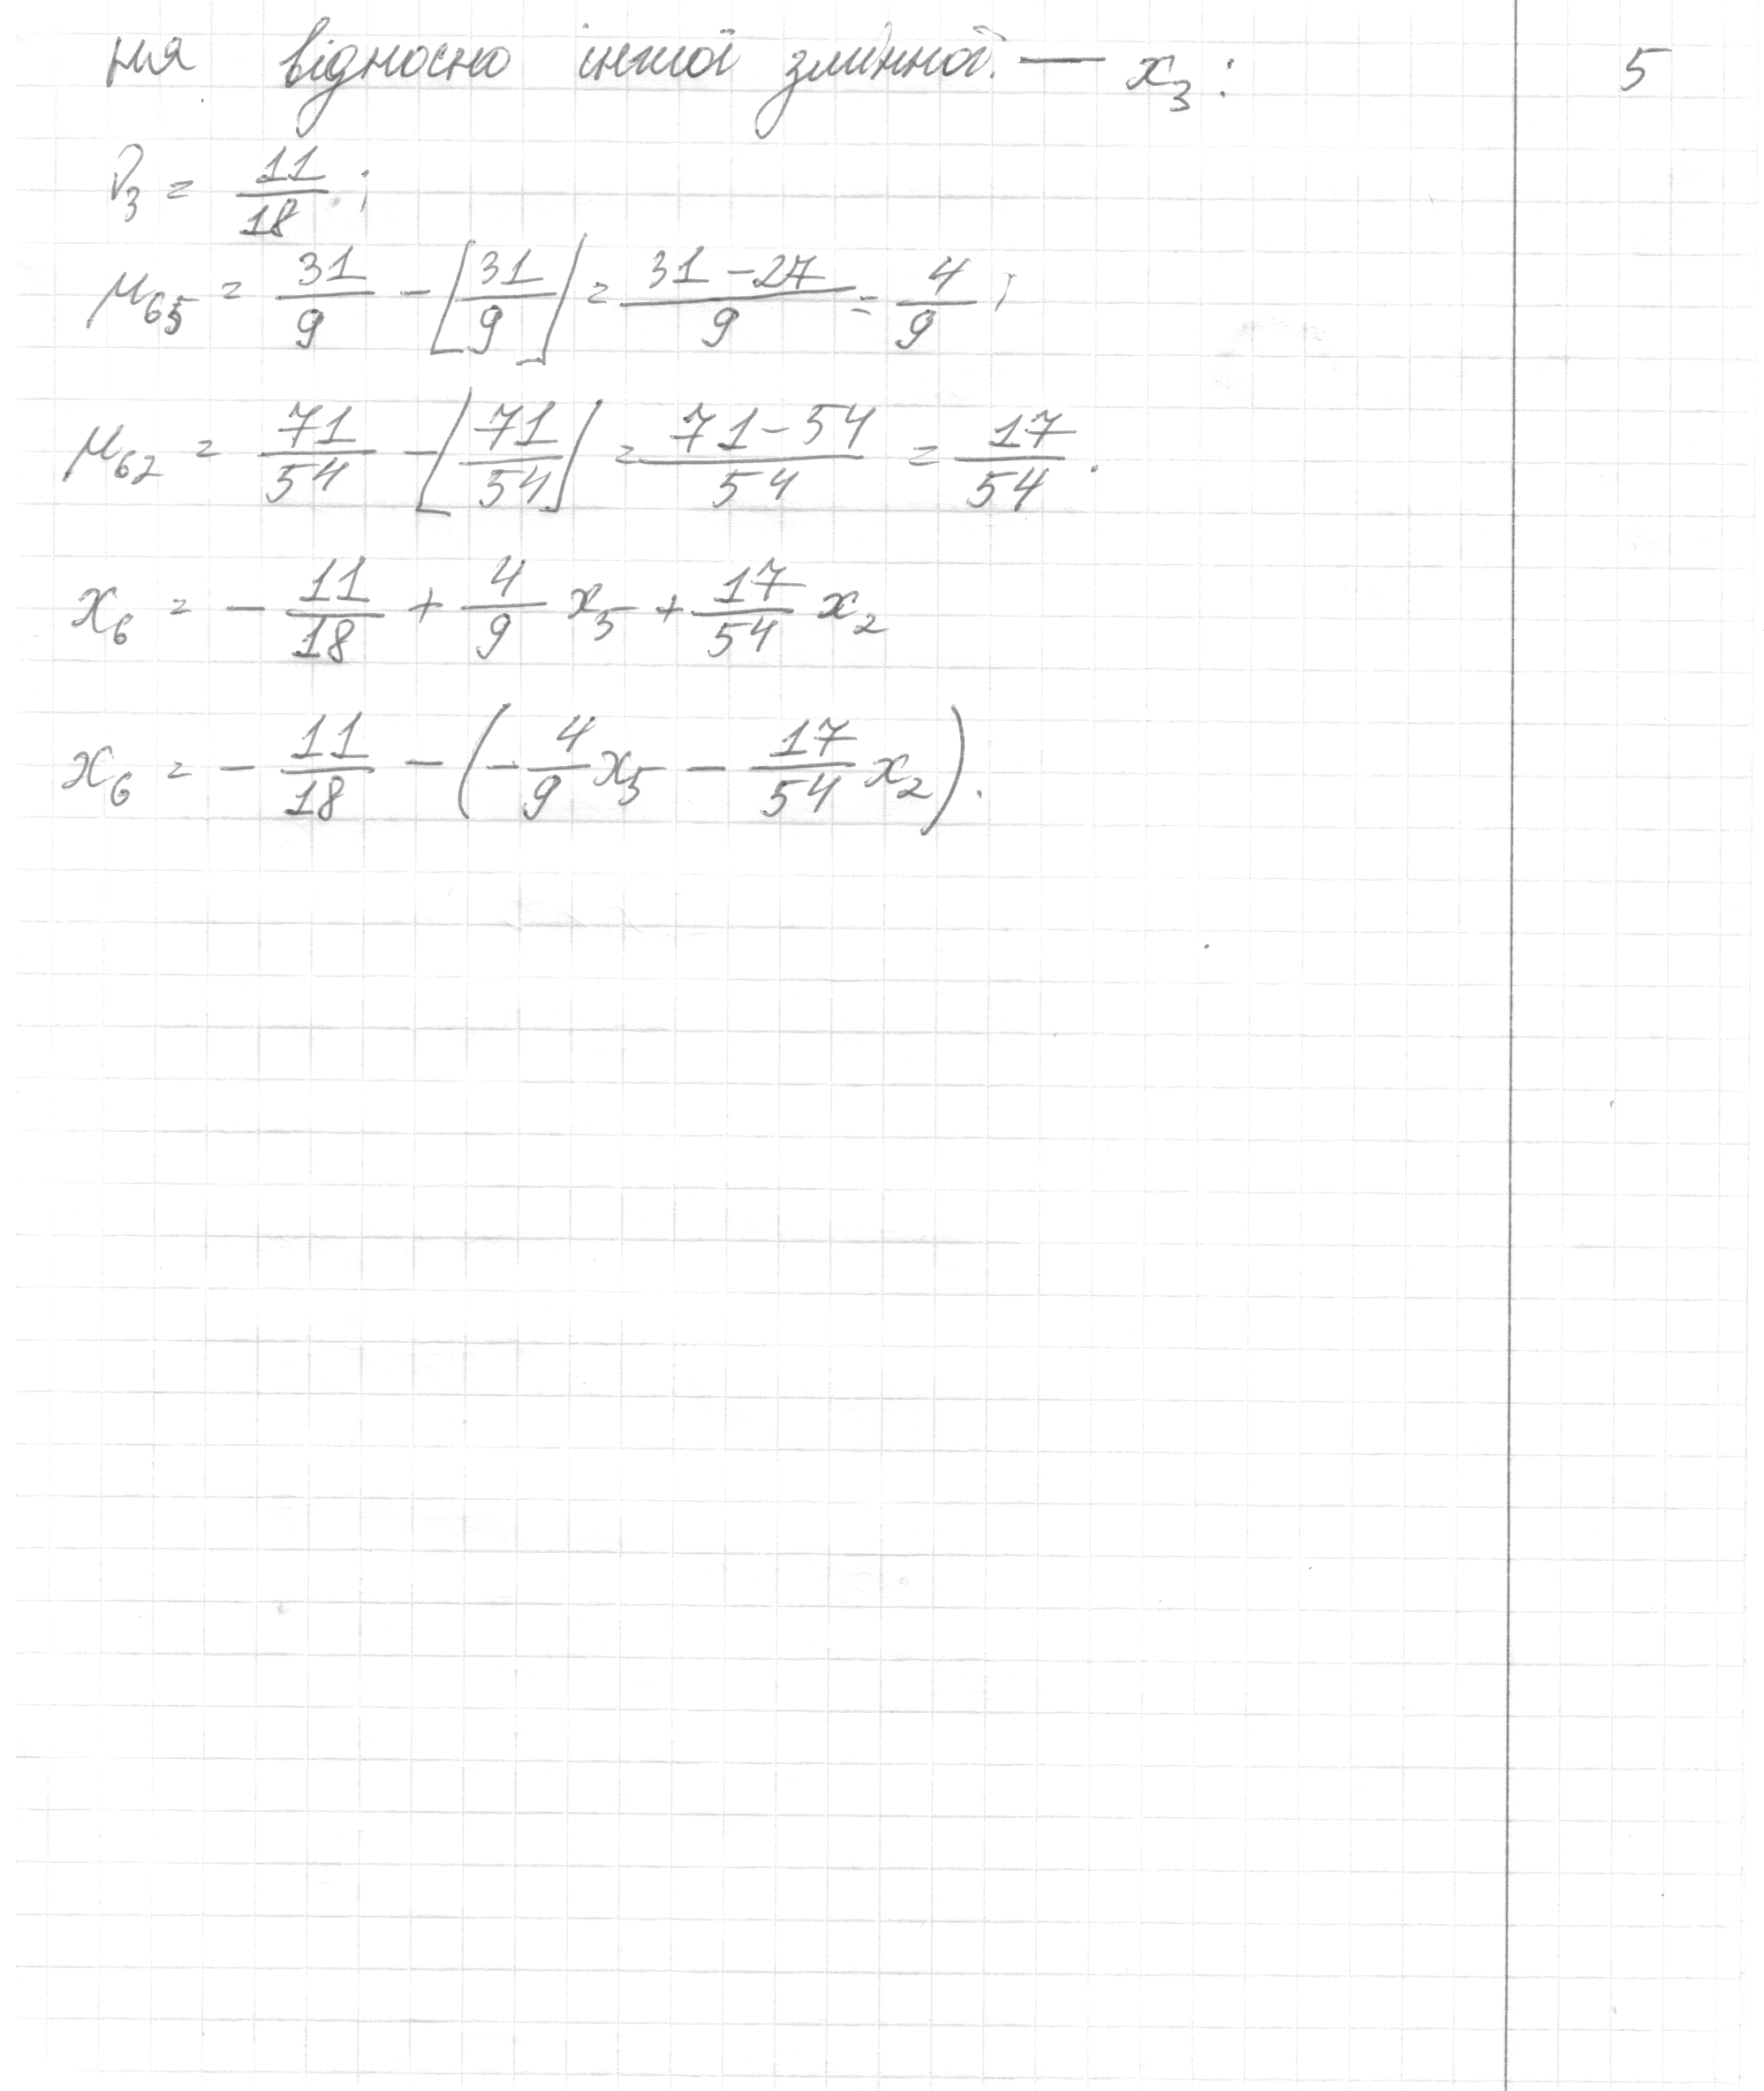 ня відносно іншої змінної. — x₃: 5
ν₃ = 11/18;
μ₆₅ = 31/9 - [31/9] = (31-27)/9 = 4/9;
μ₆₂ = 71/54 - [71/54] = (71-54)/54 = 17/54.
x₆ = - 11/18 + 4/9 x₅ + 17/54 x₂
x₆ = - 11/18 - (- 4/9 x₅ - 17/54 x₂).